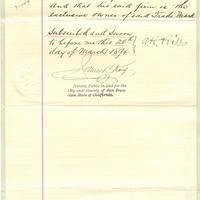 And that his said firm is the
exclusive owner of said Trade Mark
Subscribed and Sworn
to before me this 28th
day of March 1894.
James L. King
Notary Public in and for the
City and County of San Fran-
cisco State of California.